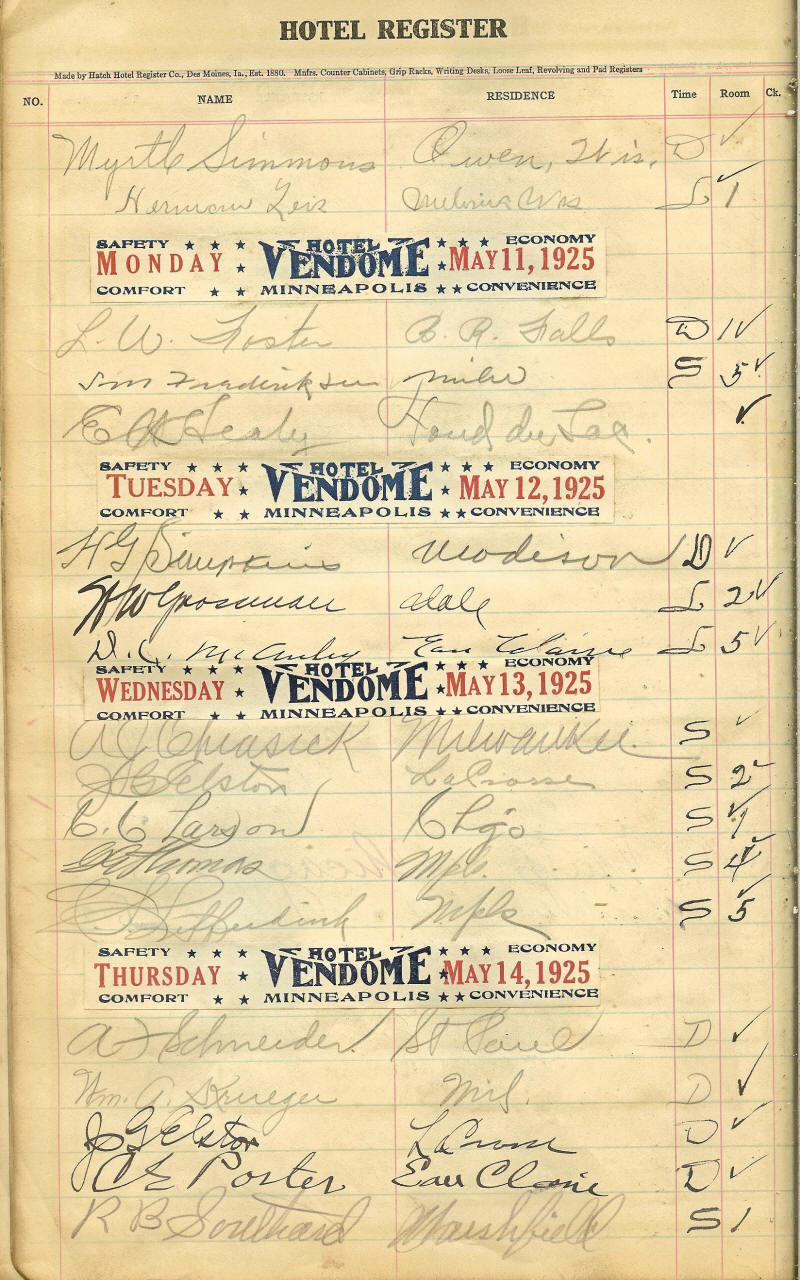 HOTEL REGISTER
Made by Hatch Hotel Register Co., Des Moines, Ia., Est. 1880. Mnfrs. Counter Cabinets, Grip Racks, Writing Desks, Loose Leaf, Revolving and Pad Registers
NO. NAME RESIDENCE Time Room Ck.
Myrtle Simmons Owen, Wis. D ✓
Herman L 1 ✓
SAFETY ★ ★ ★ HOTEL ★ ★ ★ ECONOMY
MONDAY ★ VENDOME ★ MAY 11, 1925
COMFORT ★ ★ MINNEAPOLIS ★ ★ CONVENIENCE
L. W. Foster B. R. Falls D 1 ✓
Fredericksen Milw S 5 ✓
E Healy Fond du Lac. ✓
SAFETY ★ ★ ★ HOTEL ★ ★ ★ ECONOMY
TUESDAY ★ VENDOME ★ MAY 12, 1925
COMFORT ★ ★ MINNEAPOLIS ★ ★ CONVENIENCE
H G Simpkins Madison D ✓
H W Grossman dale L 2 ✓
D. C. McAuley Eau Claire L 5 ✓
SAFETY ★ ★ ★ HOTEL ★ ★ ★ ECONOMY
WEDNESDAY ★ VENDOME ★ MAY 13, 1925
COMFORT ★ ★ MINNEAPOLIS ★ ★ CONVENIENCE
Milwaukee. S ✓
J G Elston LaCrosse S 2 ✓
C. C Larson Chgo S 1 ✓
Thomas Mpls. S 4 ✓
Mpls S 5 ✓
SAFETY ★ ★ ★ HOTEL ★ ★ ★ ECONOMY
THURSDAY ★ VENDOME ★ MAY 14, 1925
COMFORT ★ ★ MINNEAPOLIS ★ ★ CONVENIENCE
A J Schneider. St Paul D ✓
Wm. A. Krueger Mil. D ✓
J G Elston LaCrosse D ✓
C E Porter Eau Claire D ✓
R B Southard Marshfield S 1